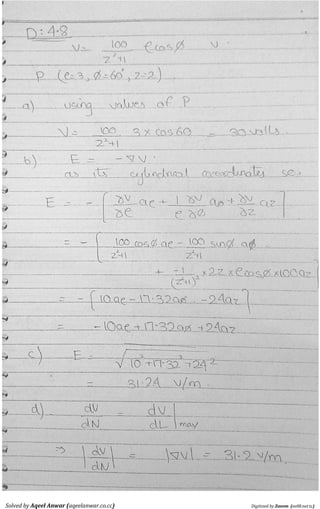 D:4.8
V = 100/(z²+1) ρ cos Ø V.
P (ρ=3, Ø=60°, z=2)
a) using values of P
V = 100/(2²+1) 3 x cos 60 = 30 volts.
b) E = -∇V.
as its cylindrical coordinates so,
E = - [ ∂V/∂ρ aρ + 1/ρ ∂V/∂Ø aø + ∂V/∂z az ]
= - [ 100/(z²+1) cos Ø aρ - 100/(z²+1) sin Ø aø
+ -1/(z²+1)² x 2z x ρ cos Ø x 100 az ]
= - [ 10 aρ - 17.32 aø - 24 az ]
= -10 aρ + 17.32 aø + 24 az
c) E = √(10² + 17.32² + 24²)
= 31.24 V/m
d) dV/dN = dV/dL | max
⇒ |dV/dN| = |∇V| = 31.2 V/m
Solved by Aqeel Anwar (aqeelanwar.co.cc)